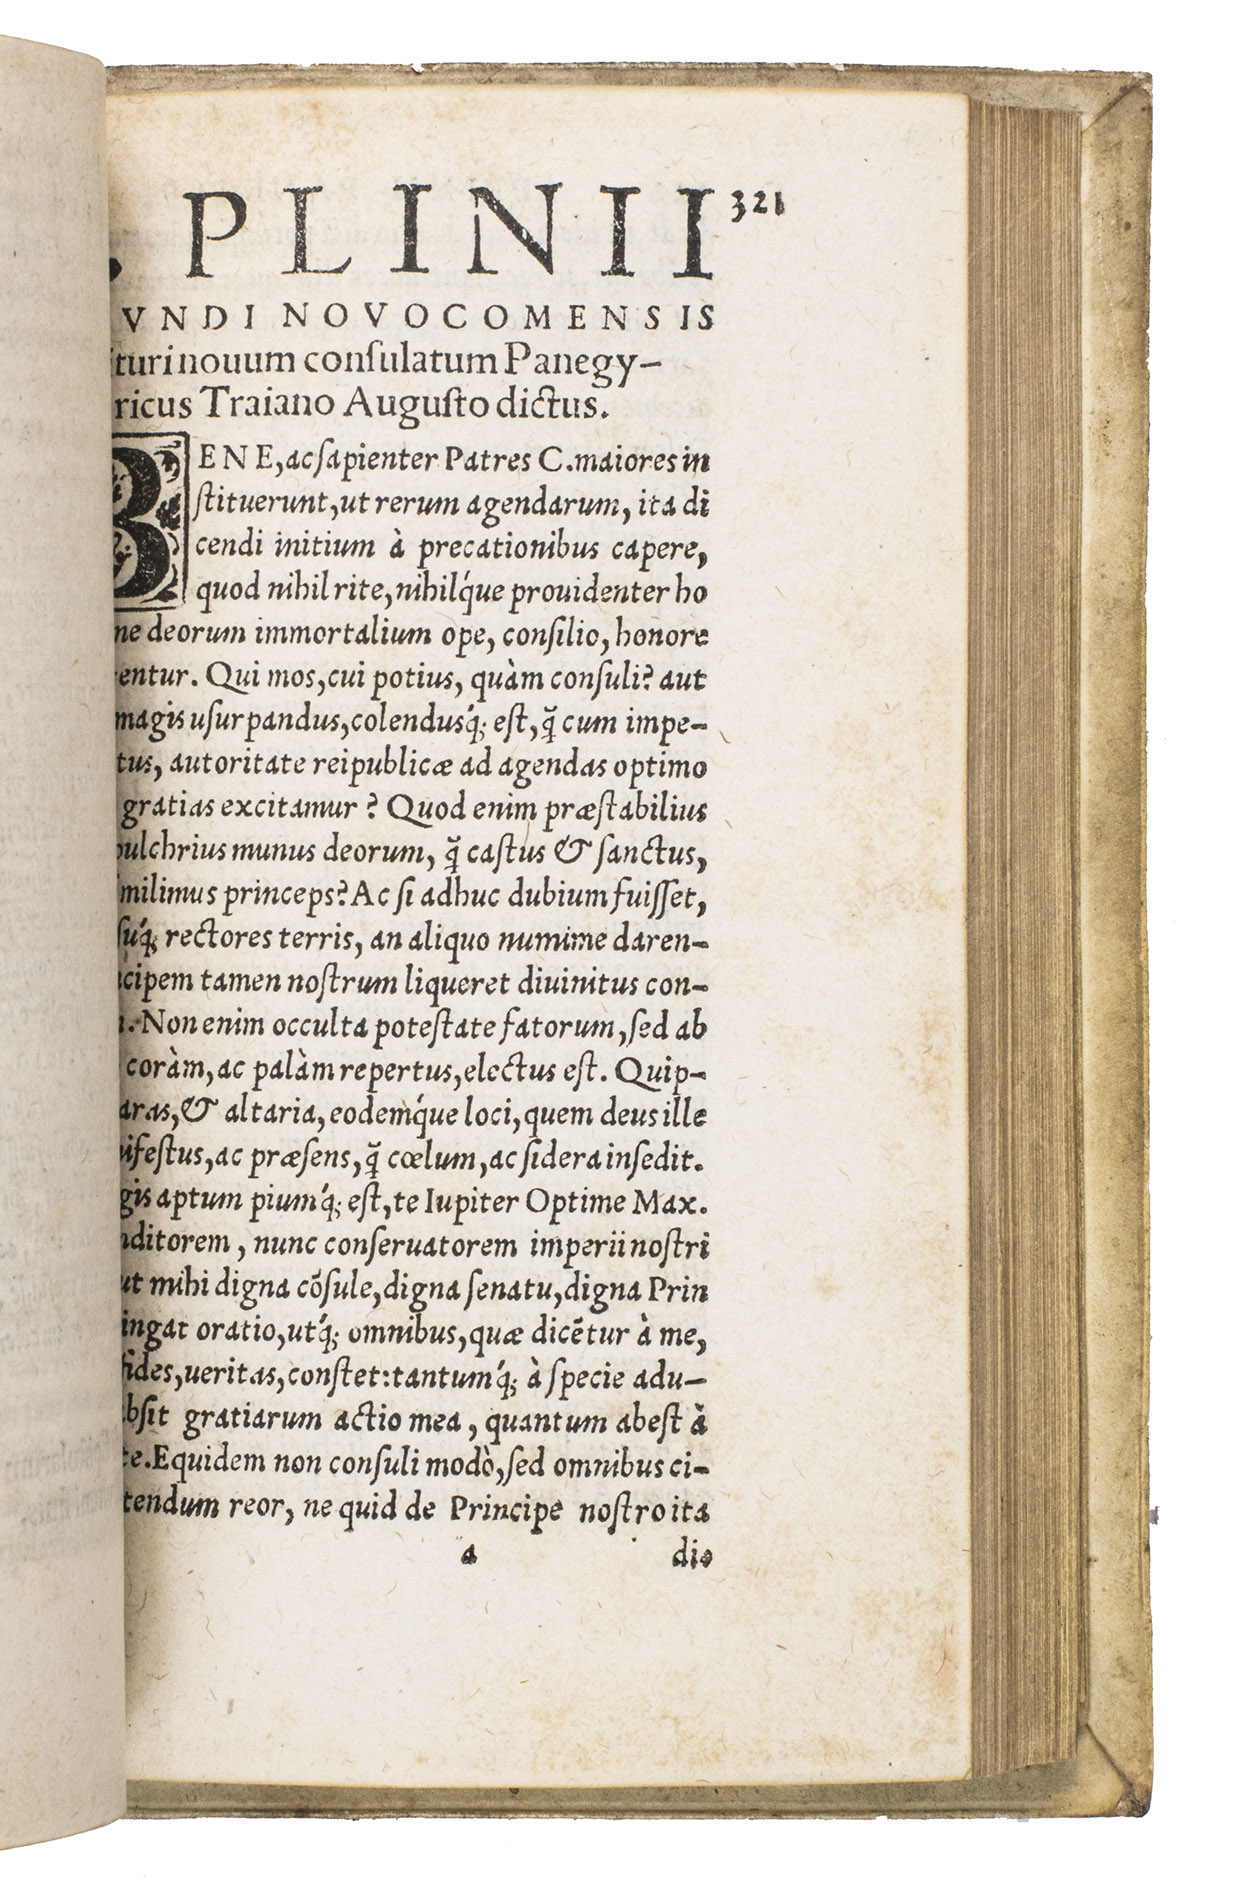 PLINII 321
VNDI NOVOCOMENSIS
turi nouum conſulatum Panegy-
ricus Traiano Auguſto dictus.
BENE, ac ſapienter Patres C. maiores in
ſtituerunt, ut rerum agendarum, ita di
cendi initium à precationibus capere,
quod nihil rite, nihilq́ue prouidenter ho
ne deorum immortalium ope, conſilio, honore
entur. Qui mos, cui potius, quàm conſuli? aut
magis uſurpandus, colendusq́; eſt, q̃ cum impe-
tus, autoritate reipublicæ ad agendas optimo
gratias excitamur? Quod enim præſtabilius
pulchrius munus deorum, q̃ caſtus & ſanctus,
milimus princeps? Ac ſi adhuc dubium fuiſſet,
ſuq́; rectores terris, an aliquo numime daren-
cipem tamen noſtrum liqueret diuinitus con-
. Non enim occulta poteſtate fatorum, ſed ab
coràm, ac palàm repertus, electus eſt. Quip-
aras, & altaria, eodemq́ue loci, quem deus ille
nifeſtus, ac præſens, q̃ cœlum, ac ſidera inſedit.
gis aptum piumq́; eſt, te Iupiter Optime Max.
nditorem, nunc conſeruatorem imperii noſtri
ut mihi digna cõſule, digna ſenatu, digna Prin
ingat oratio, utq́; omnibus, quæ dicẽtur à me,
fides, ueritas, conſtet: tantumq́; à ſpecie adu-
bſit gratiarum actio mea, quantum abeſt à
te. Equidem non conſuli modò, ſed omnibus ci-
tendum reor, ne quid de Principe noſtro ita
a dio